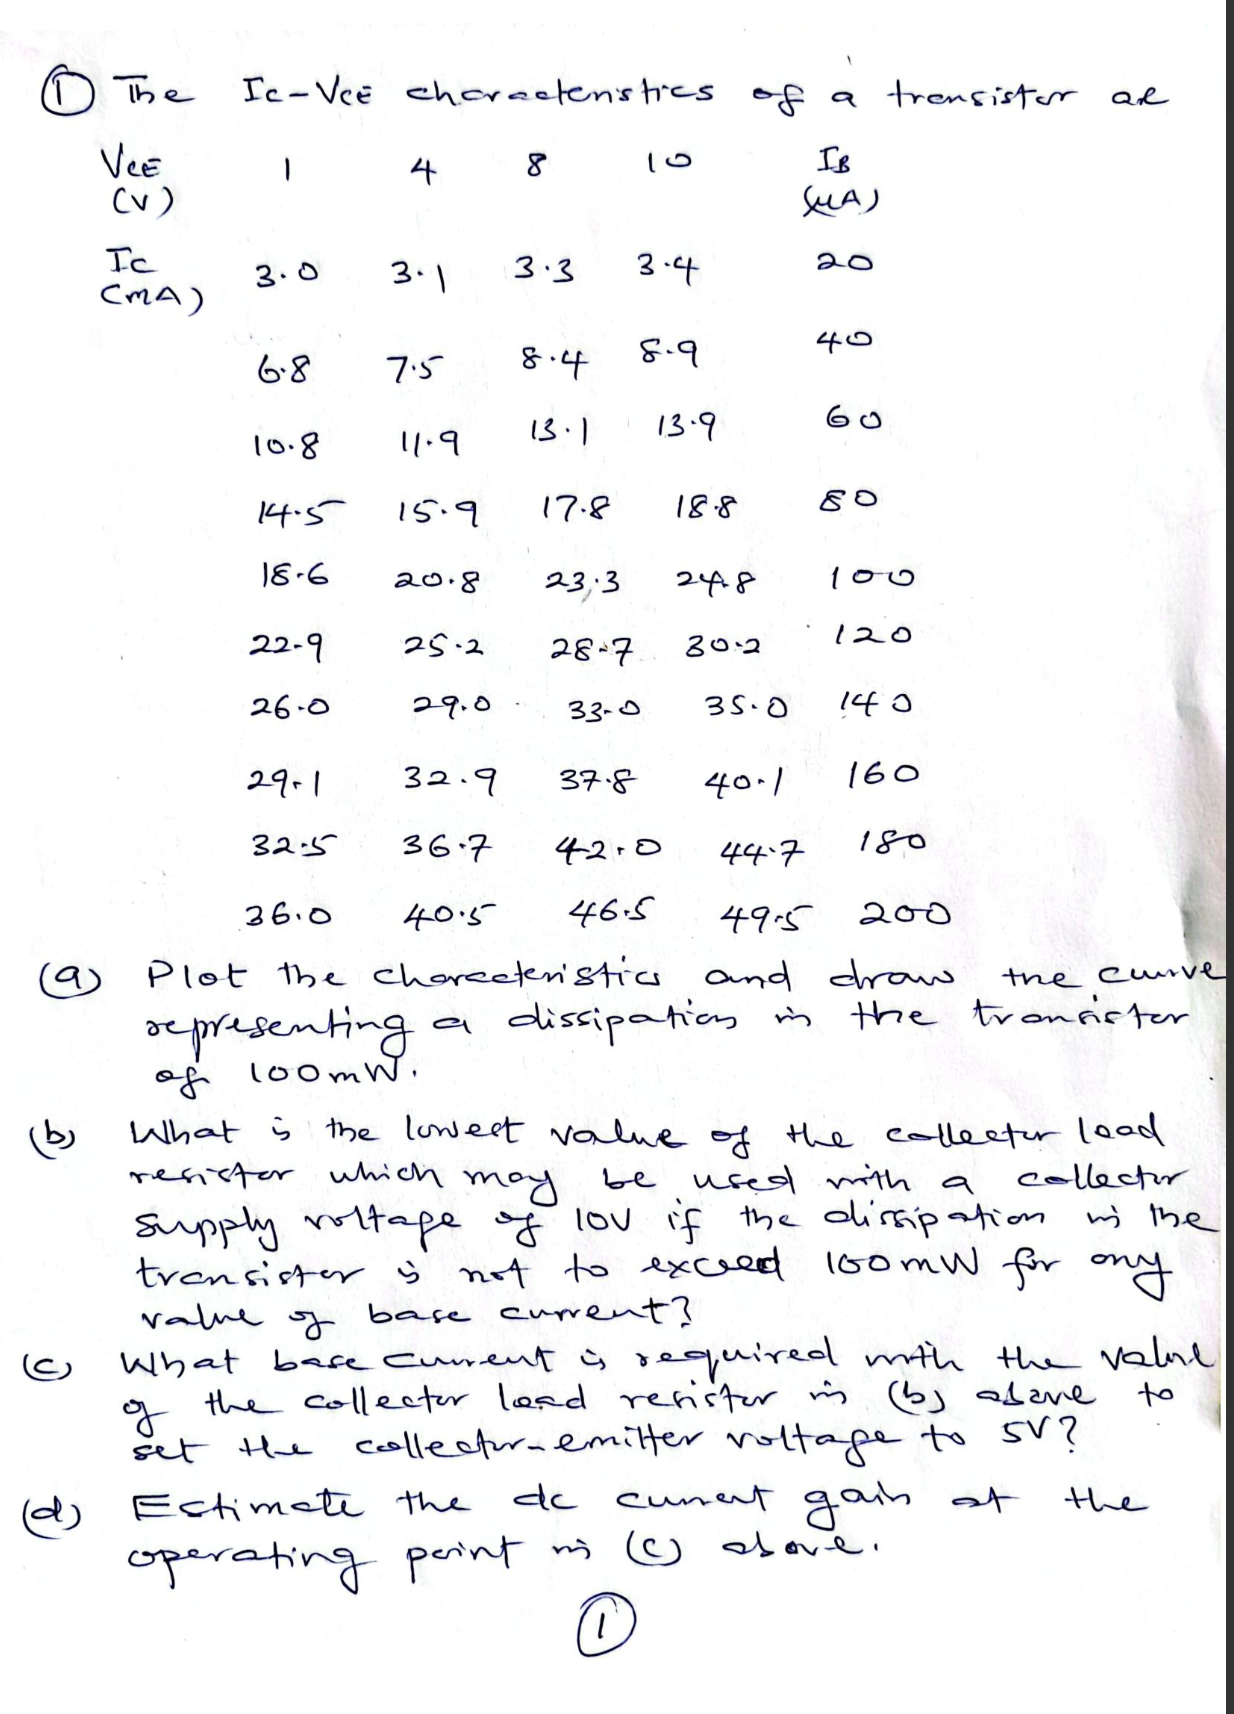 ① The Ic-VCE characteristics of a transistor are
VCE 1 4 8 10 IB
(V) (μA)
Ic 3.0 3.1 3.3 3.4 20
(mA)
6.8 7.5 8.4 8.9 40
10.8 11.9 13.1 13.9 60
14.5 15.9 17.8 18.8 80
18.6 20.8 23.3 24.8 100
22.9 25.2 28.7 30.2 120
26.0 29.0 33.0 35.0 140
29.1 32.9 37.8 40.1 160
32.5 36.7 42.0 44.7 180
36.0 40.5 46.5 49.5 200
(a) Plot the characteristics and draw the curve
representing a dissipation in the transistor
of 100mW.
(b) What is the lowest value of the collector load
resistor which may be used with a collector
supply voltage of 10V if the dissipation in the
transistor is not to exceed 100mW for any
value of base current?
(c) What base current is required with the value
of the collector load resistor in (b) above to
set the collector-emitter voltage to 5V?
(d) Estimate the dc current gain at the
operating point in (c) above.
①